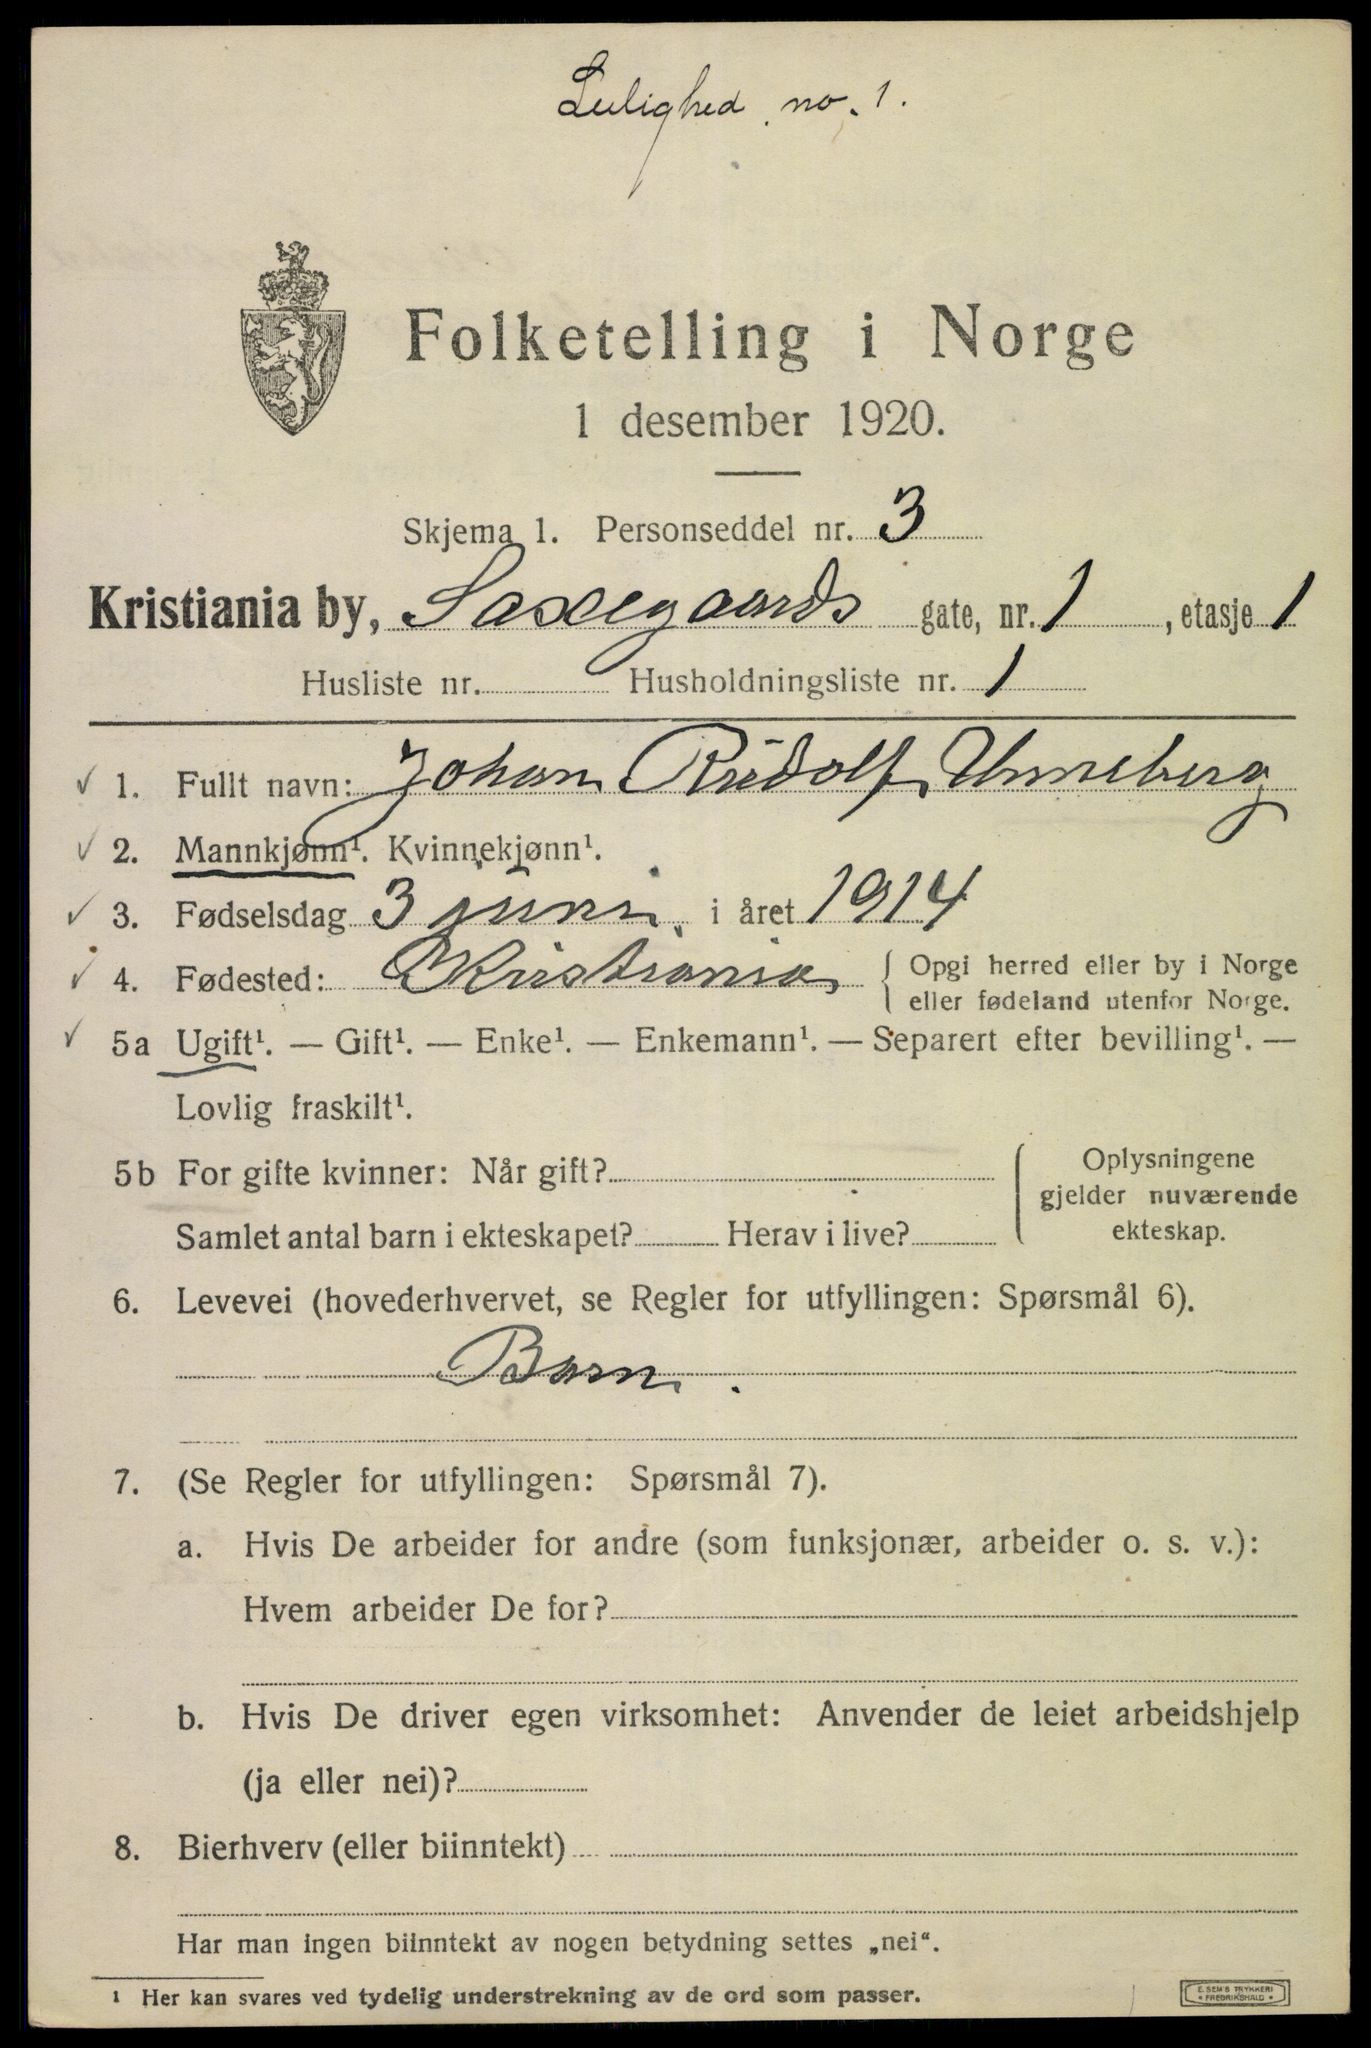 Leilighed no. 1.
Folketelling i Norge
1 desember 1920.
Skjema 1. Personseddel nr. 3
Kristiania by, Saxegaards gate, nr. 1, etasje 1
Husliste nr. Husholdningsliste nr. 1
1. Fullt navn: Johan Rudolf Unneberg
2. Mannkjønn¹. Kvinnekjønn¹.
3. Fødselsdag 3 juni i året 1914
4. Fødested: Kristiania { Opgi herred eller by i Norge
eller fødeland utenfor Norge.
5a Ugift¹. — Gift¹. — Enke¹. — Enkemann¹. — Separert efter bevilling¹. —
Lovlig fraskilt¹.
5b For gifte kvinner: Når gift?
Samlet antal barn i ekteskapet? Herav i live?
Oplysningene
gjelder nuværende
ekteskap.
6. Levevei (hovederhvervet, se Regler for utfyllingen: Spørsmål 6).
Barn.
7. (Se Regler for utfyllingen: Spørsmål 7).
a. Hvis De arbeider for andre (som funksjonær, arbeider o. s. v.):
Hvem arbeider De for?
b. Hvis De driver egen virksomhet: Anvender de leiet arbeidshjelp
(ja eller nei)?
8. Bierhverv (eller biinntekt)
Har man ingen biinntekt av nogen betydning settes „nei“.
¹ Her kan svares ved tydelig understrekning av de ord som passer.
E. SEM'S TRYKKERI
• FREDRIKSHALD •